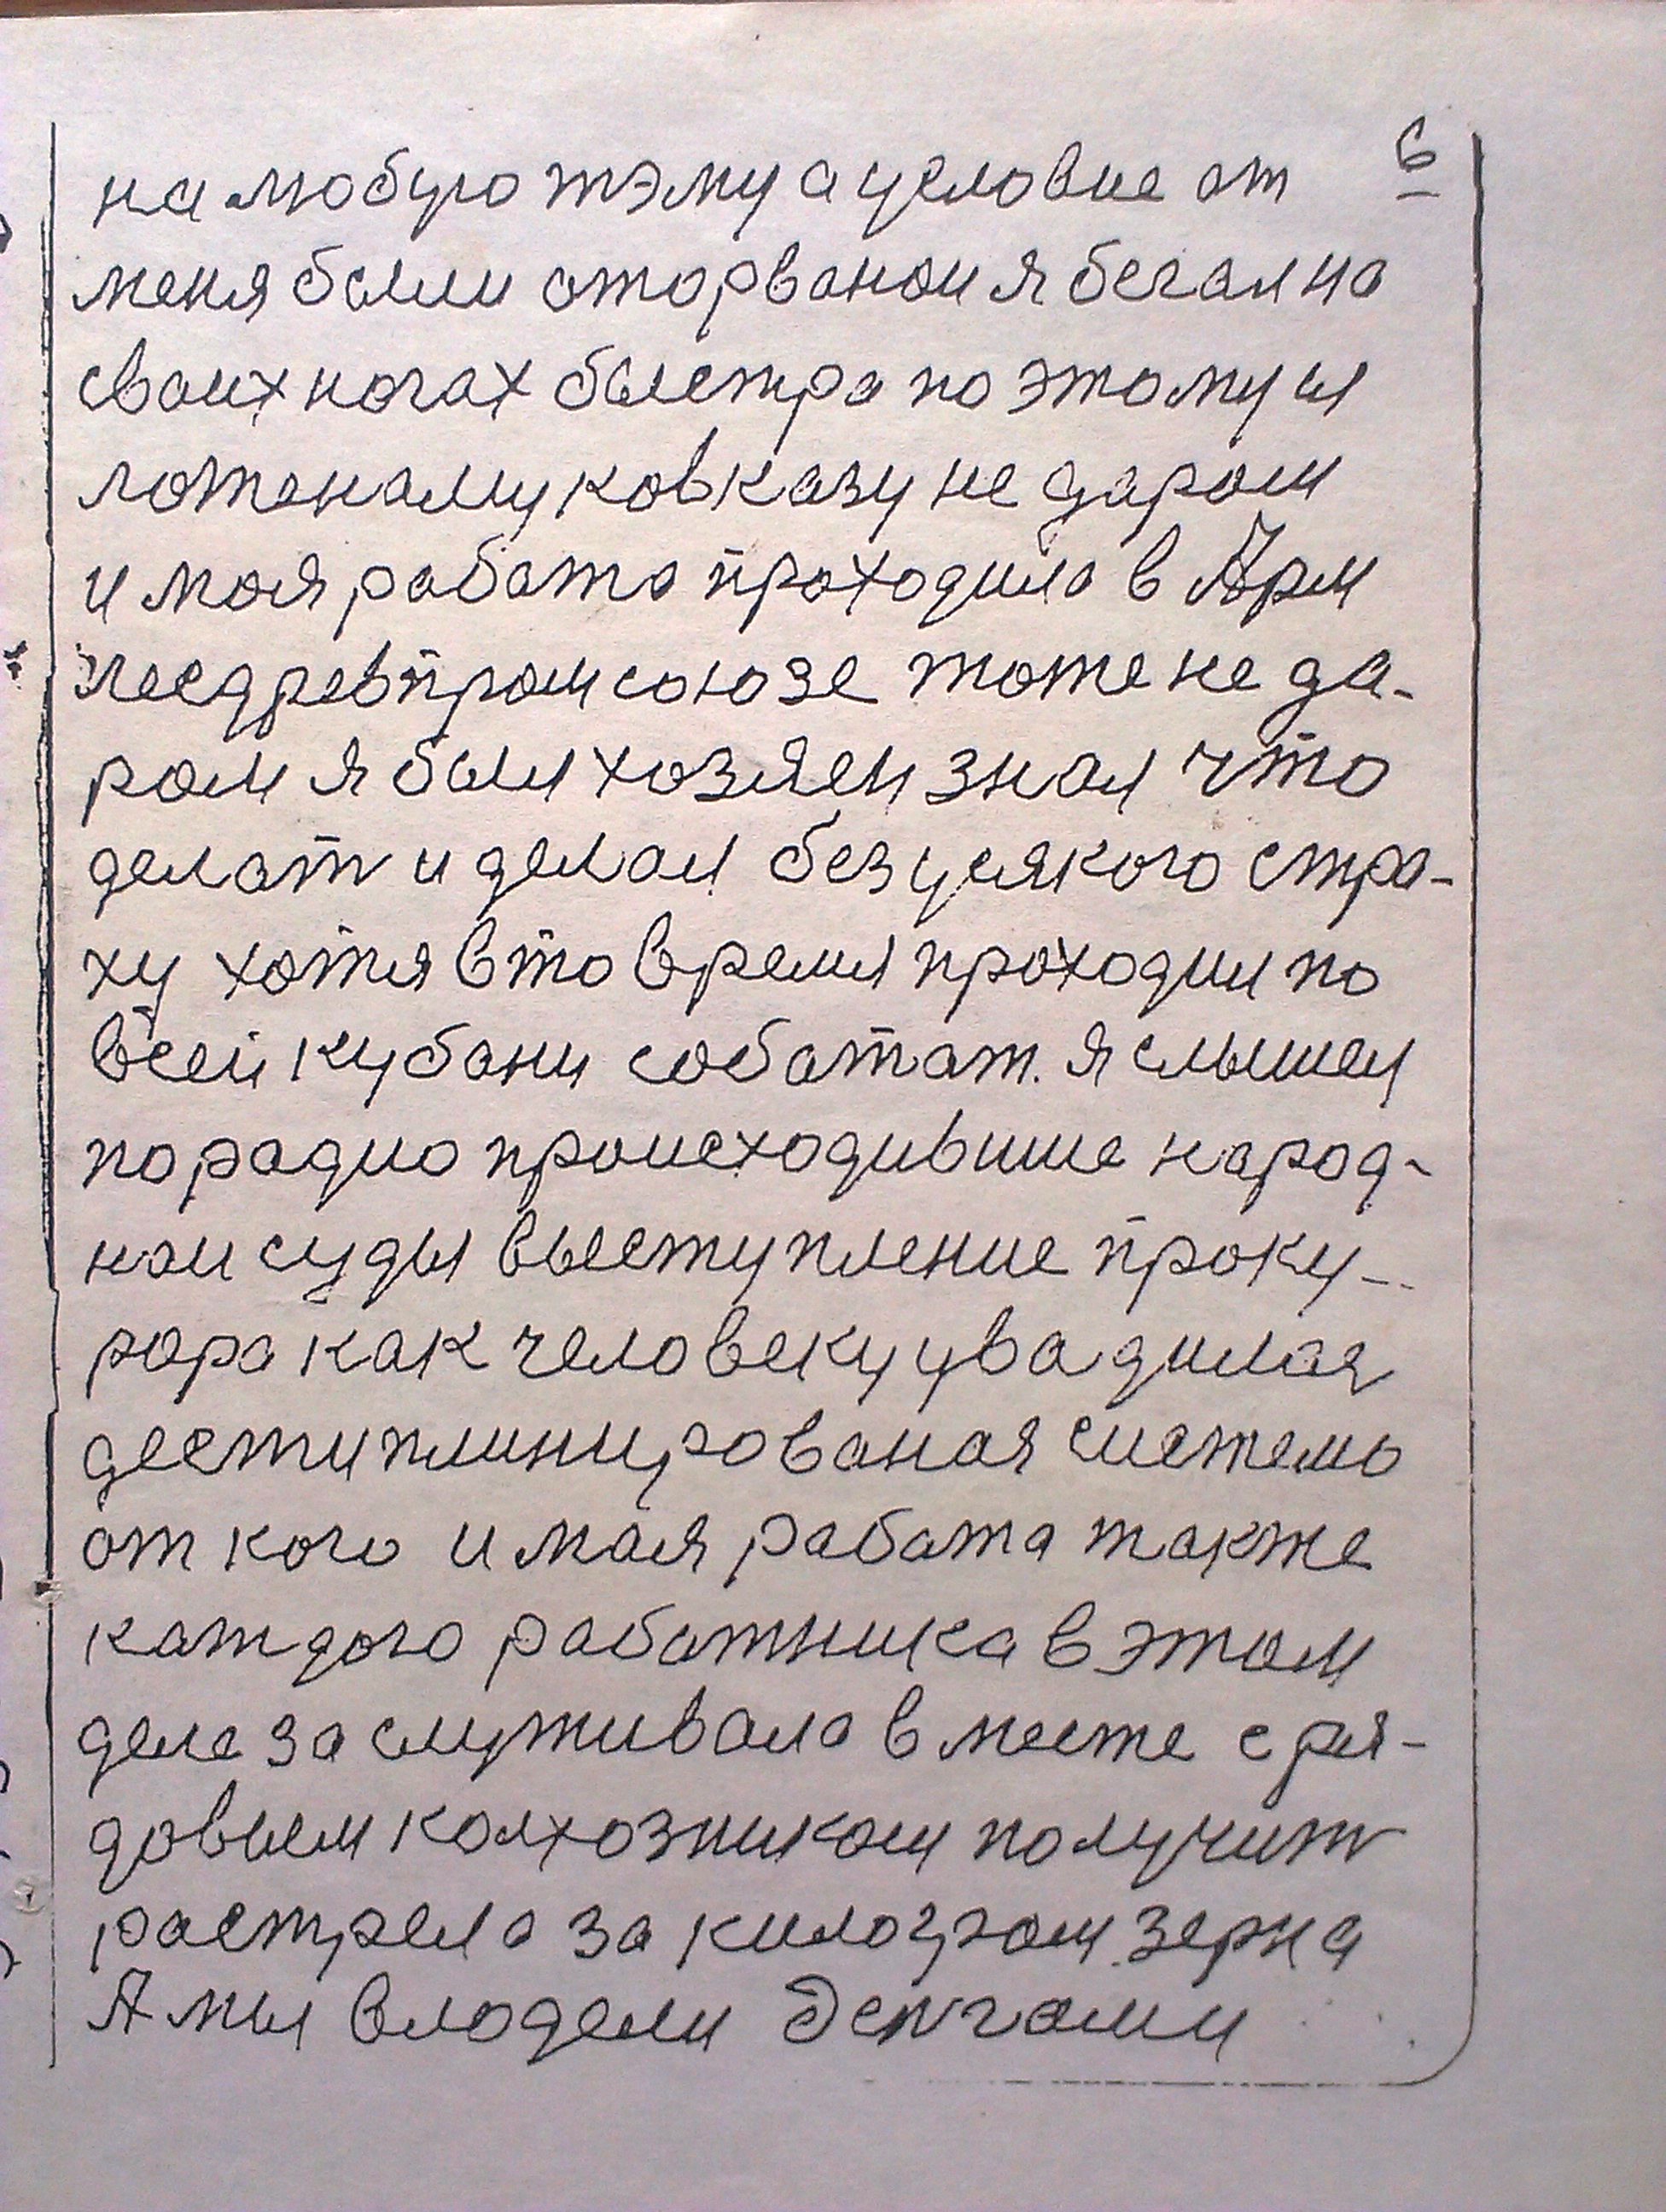 6
на любую тэму а условие от
меня были оторванои я бегал на
своих ногах быстро по этому и
ложеному ковказу не даром
и моя работа проходила в Арм
лесдревпромсоюзе тоже не да-
ром я был хозяен знал что
делат и делал без усякого стра-
ху хотя в то время проходил по
всей кубани соботат. я слышал
по радио происходившие народ-
нои суды выступление проку-
рора как человеку увадилая
дестиплинированая система
от кого и моя работа также
каждого работника в этом
деле заслуживала в месте с ря-
довым колхозником получит
растрела за килограм зерна
А мы влодели денгами